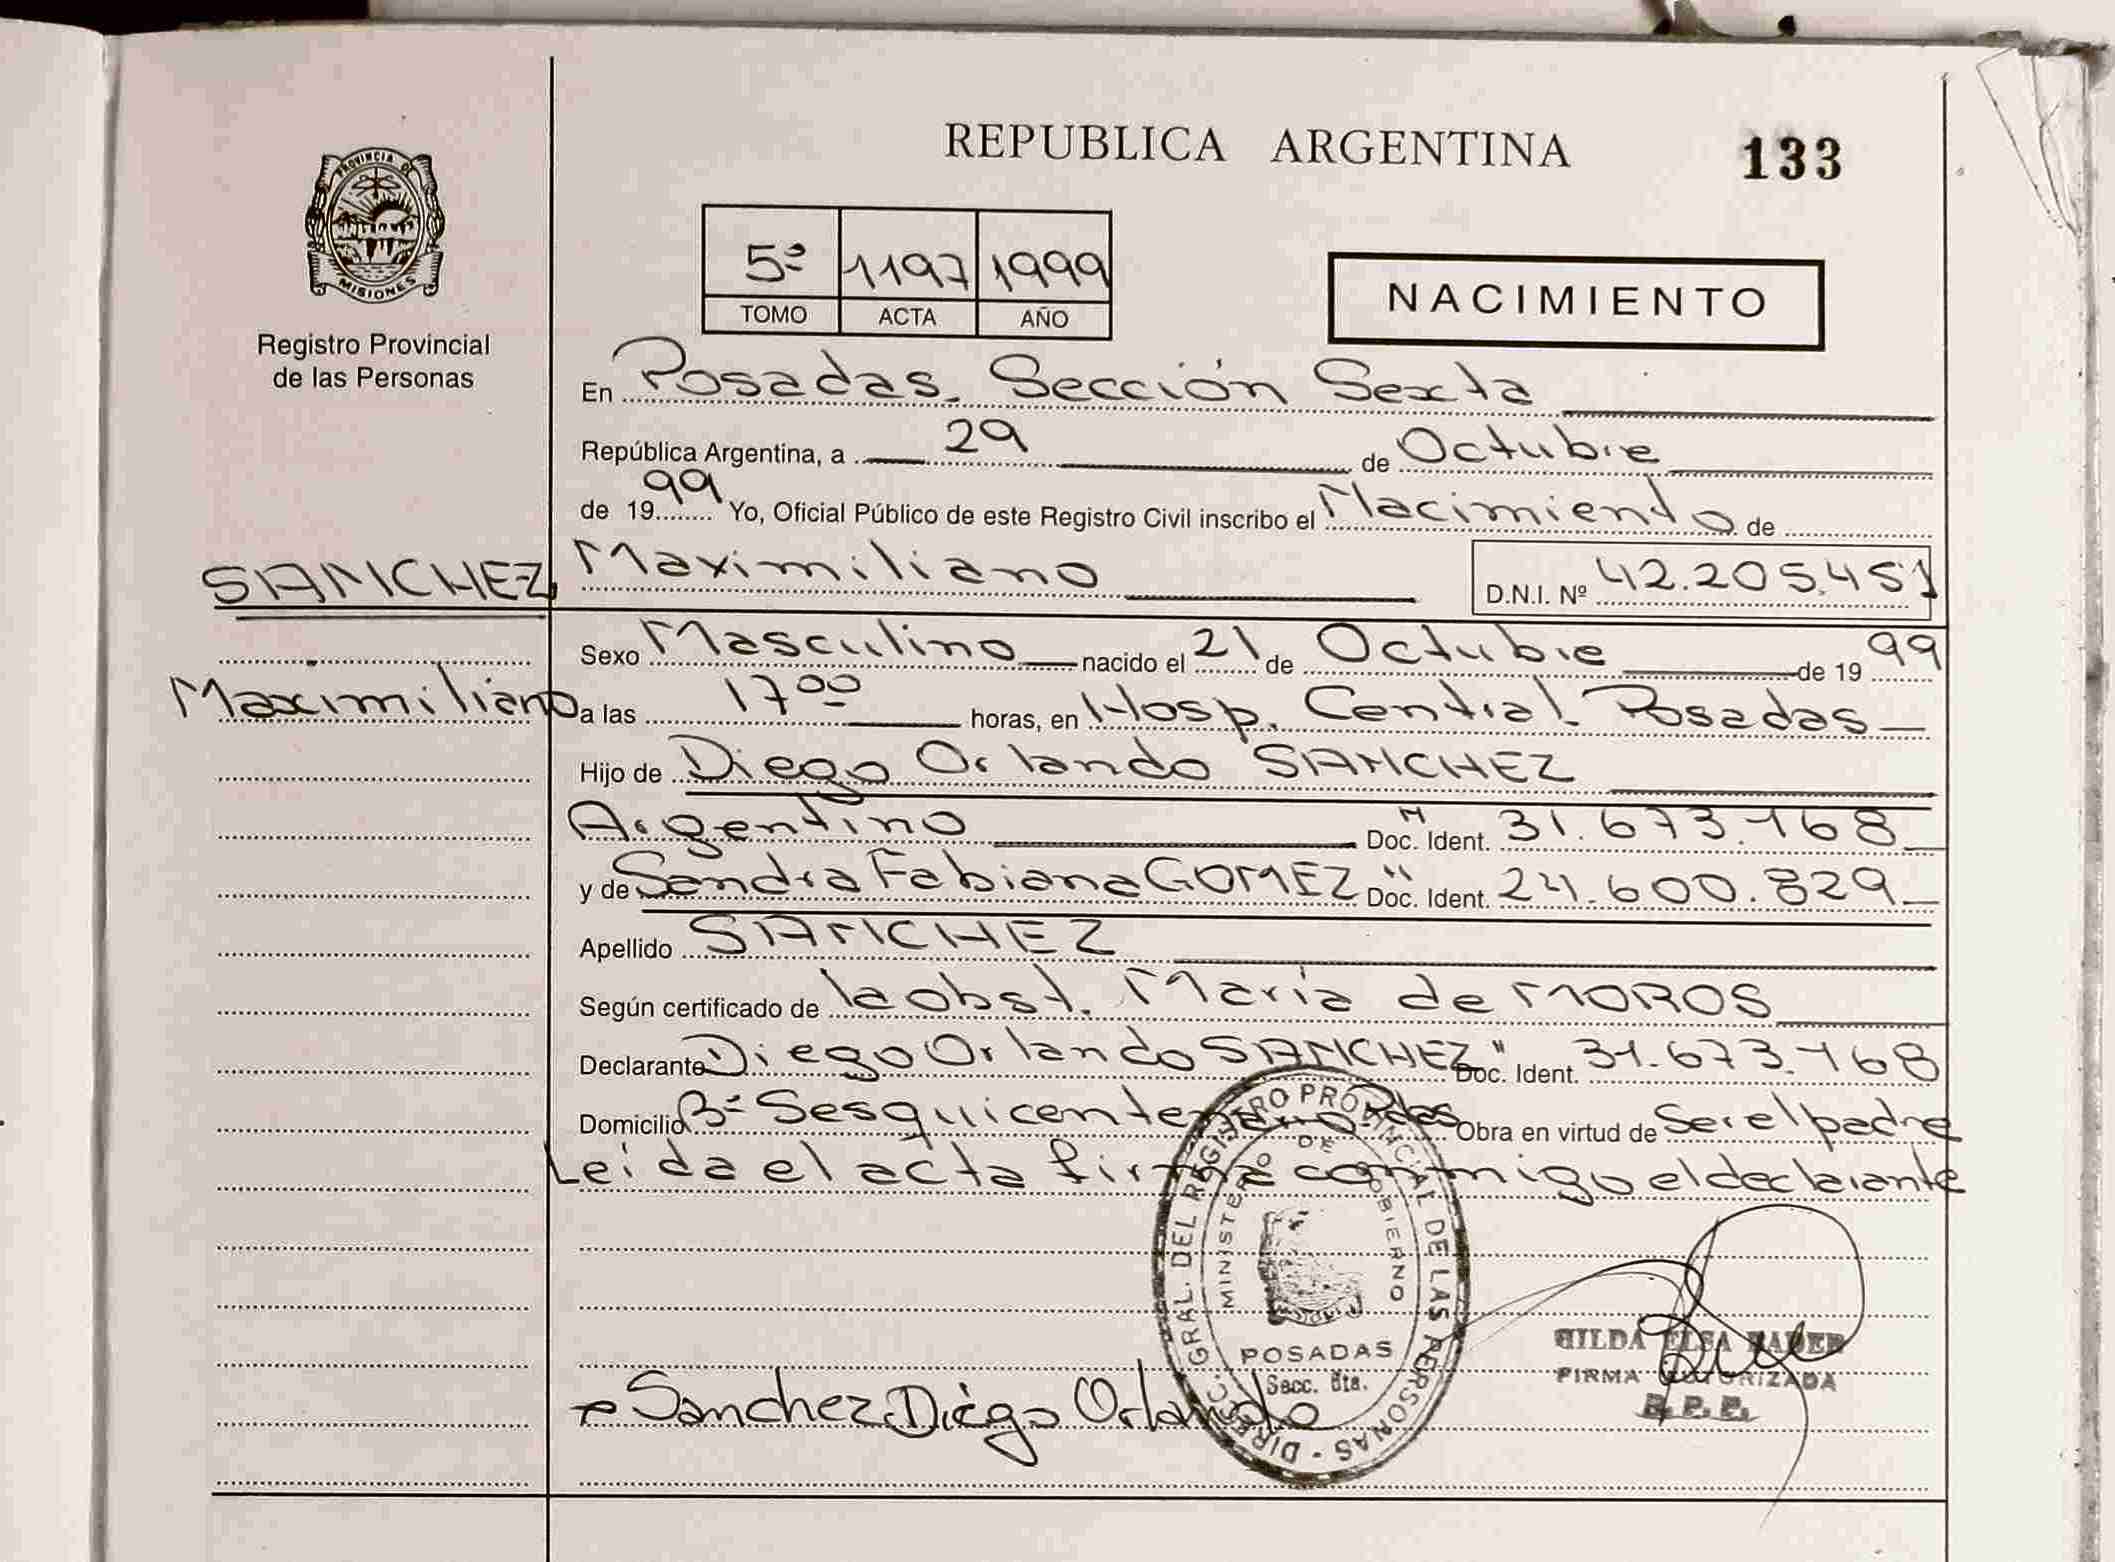 REPUBLICA ARGENTINA
133
PROVINCIA DE
MISIONES
Registro Provincial
de las Personas
5º 1197 1999
TOMO ACTA AÑO
NACIMIENTO
En Posadas. Sección Sexta
República Argentina, a 29 de Octubre
de 1999 Yo, Oficial Público de este Registro Civil inscribo el Nacimiento de
SANCHEZ, Maximiliano D.N.I. Nº 42.205.451
Sexo Masculino nacido el 21 de Octubre de 1999
Maximiliano
a las 17⁰⁰ horas, en Hosp. Central Posadas
Hijo de Diego Orlando SANCHEZ
Argentino Doc. Ident. 31.673.168
y de Sandra Fabiana GOMEZ " Doc. Ident. 24.600.829
Apellido SANCHEZ
Según certificado de la obst. María de MOROS
Declarante Diego Orlando SANCHEZ " Doc. Ident. 31.673.168
Domicilio Bº Sesquicentenario Pdas Obra en virtud de Ser el padre
Leída el acta firma conmigo el declarante
DIRECC. GRAL. DEL REGISTRO PROVINCIAL DE LAS PERSONAS
MINISTERIO DE GOBIERNO
POSADAS
Secc. 6ta.
GILDA ELSA
FIRMA AUTORIZADA
R. P. P.
Sanchez Diego Orlando